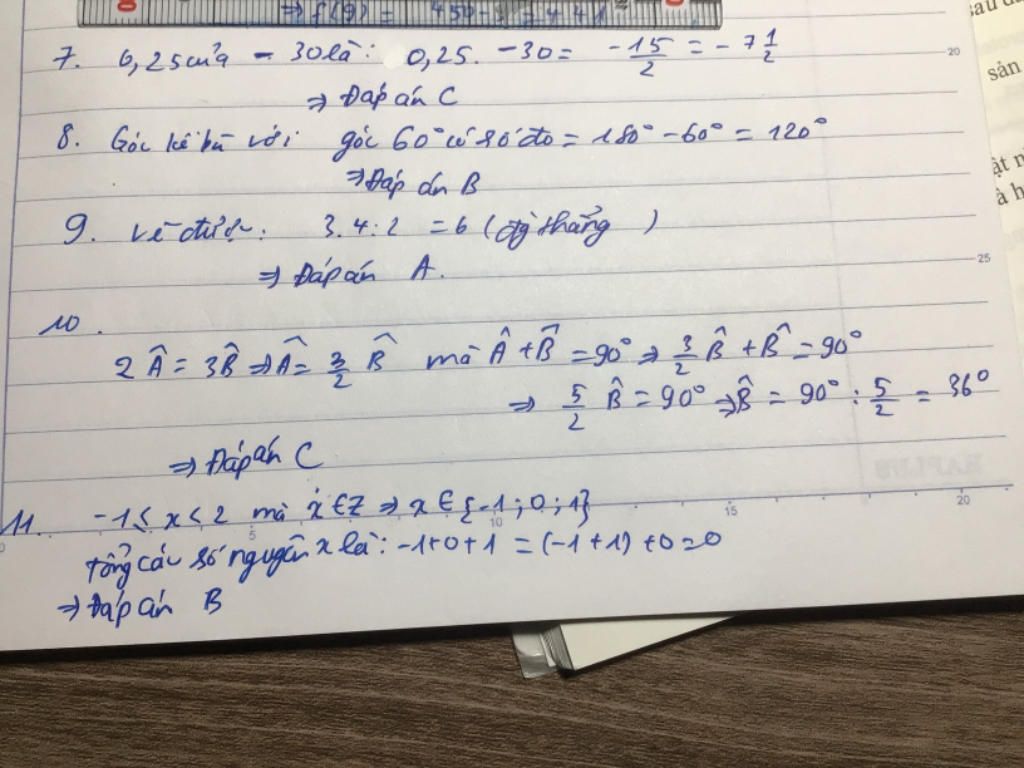 ⇒ f(9) = 450 - 9 = 441
7. 0,25 của - 30 là: 0,25. -30 = -15/2 = -7 1/2
⇒ Đáp án C
8. Góc kề bù với góc 60° có số đo = 180° - 60° = 120°
⇒ Đáp án B
9. Vẽ được: 3.4:2 = 6 (đg thẳng )
⇒ Đáp án A.
10.
2Â = 3B̂ ⇒ Â = 3/2 B̂ mà Â + B̂ = 90° ⇒ 3/2 B̂ + B̂ = 90°
⇒ 5/2 B̂ = 90° ⇒ B̂ = 90° : 5/2 = 36°
⇒ Đáp án C
11. -1 ≤ x < 2 mà x ∈ Z ⇒ x ∈ {-1; 0; 1}
tổng các số nguyên x là: -1+0+1 = (-1+1) +0=0
⇒ Đáp án B
sản
20
25
5
10
15
20